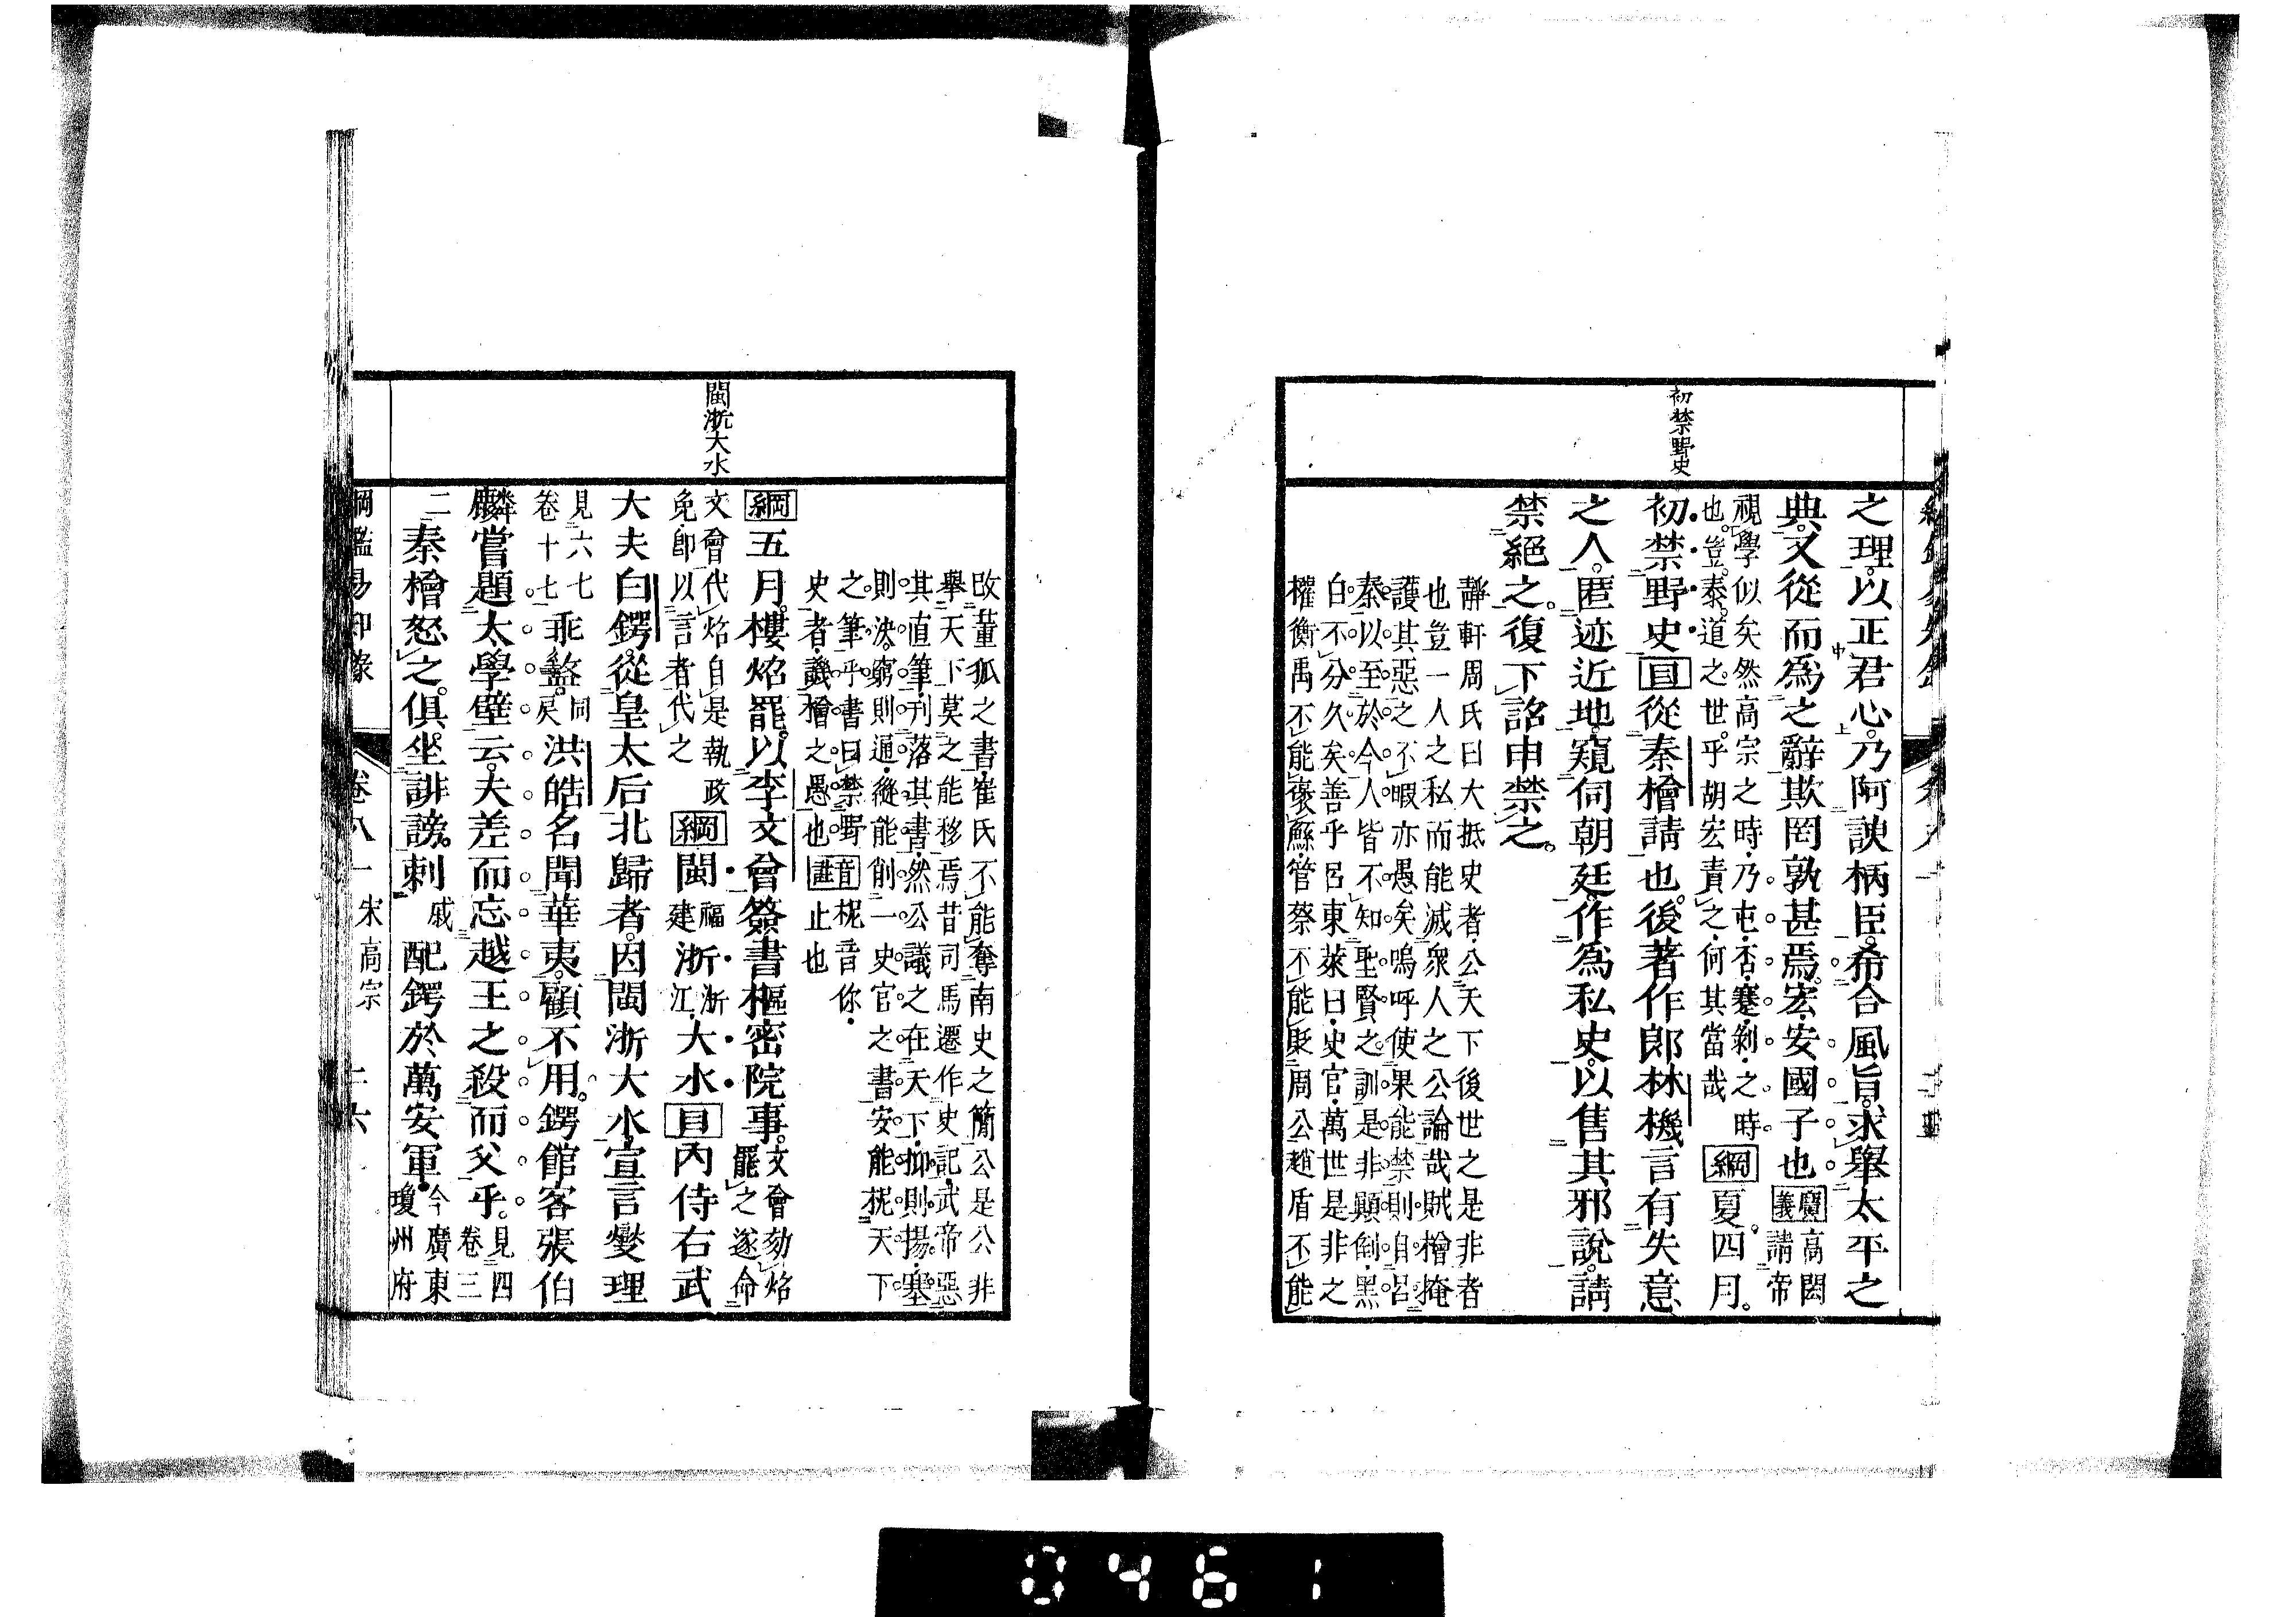 初禁野史
之理以正君心乃阿諛柄臣希合風旨求舉太平之
典又從而爲之辭欺罔孰甚焉宏安國子也廣義高閌請帝
視學似矣然高宗之時乃屯否蹇剝之時
也豈泰道之世乎胡宏責之何其當哉
綱夏四月
初禁野史目從秦檜請也後著作郎林機言有失意
之人匿迹近地窺伺朝廷作爲私史以售其邪說請
禁絕之復下詔申禁之
靜軒周氏曰大抵史者公天下後世之是非者
也豈一人之私而能滅衆人之公論哉賊檜掩
護其惡之不暇亦愚矣嗚呼使果能禁則自呂
秦以至於今人皆不知聖賢之訓是非顚倒黑
白不分久矣善乎呂東萊曰史官萬世是非之
權衡禹不能褒鯀管蔡不能貶周公趙盾不能
閩浙大水
改董狐之書崔氏不能奪南史之簡公是公非
舉天下莫之能移焉昔司馬遷作史記武帝惡
其直筆刊落其書然公議之在天下抑則揚塞
則決窮則通縱能削一史官之書安能柅天下
之筆乎書曰禁野
史者譏檜之愚也
音註柅音你
止也
綱五月樓炤罷以李文會簽書樞密院事文會劾炤
罷之遂命
文會代炤自是執政
免卽以言者代之
綱閩福建浙浙江大水目內侍右武
大夫白鍔從皇太后北歸者因閩浙大水宣言燮理
見六七
卷十七
乖盭同戾洪皓名聞華夷顧不用鍔館客張伯
麟嘗題太學壁云夫差而忘越王之殺而父乎見四
卷三
二秦檜怒之俱坐誹謗刺
戚配鍔於萬安軍今廣東
瓊州府
綱鑑易知錄 卷八一 宋高宗 二六
0461